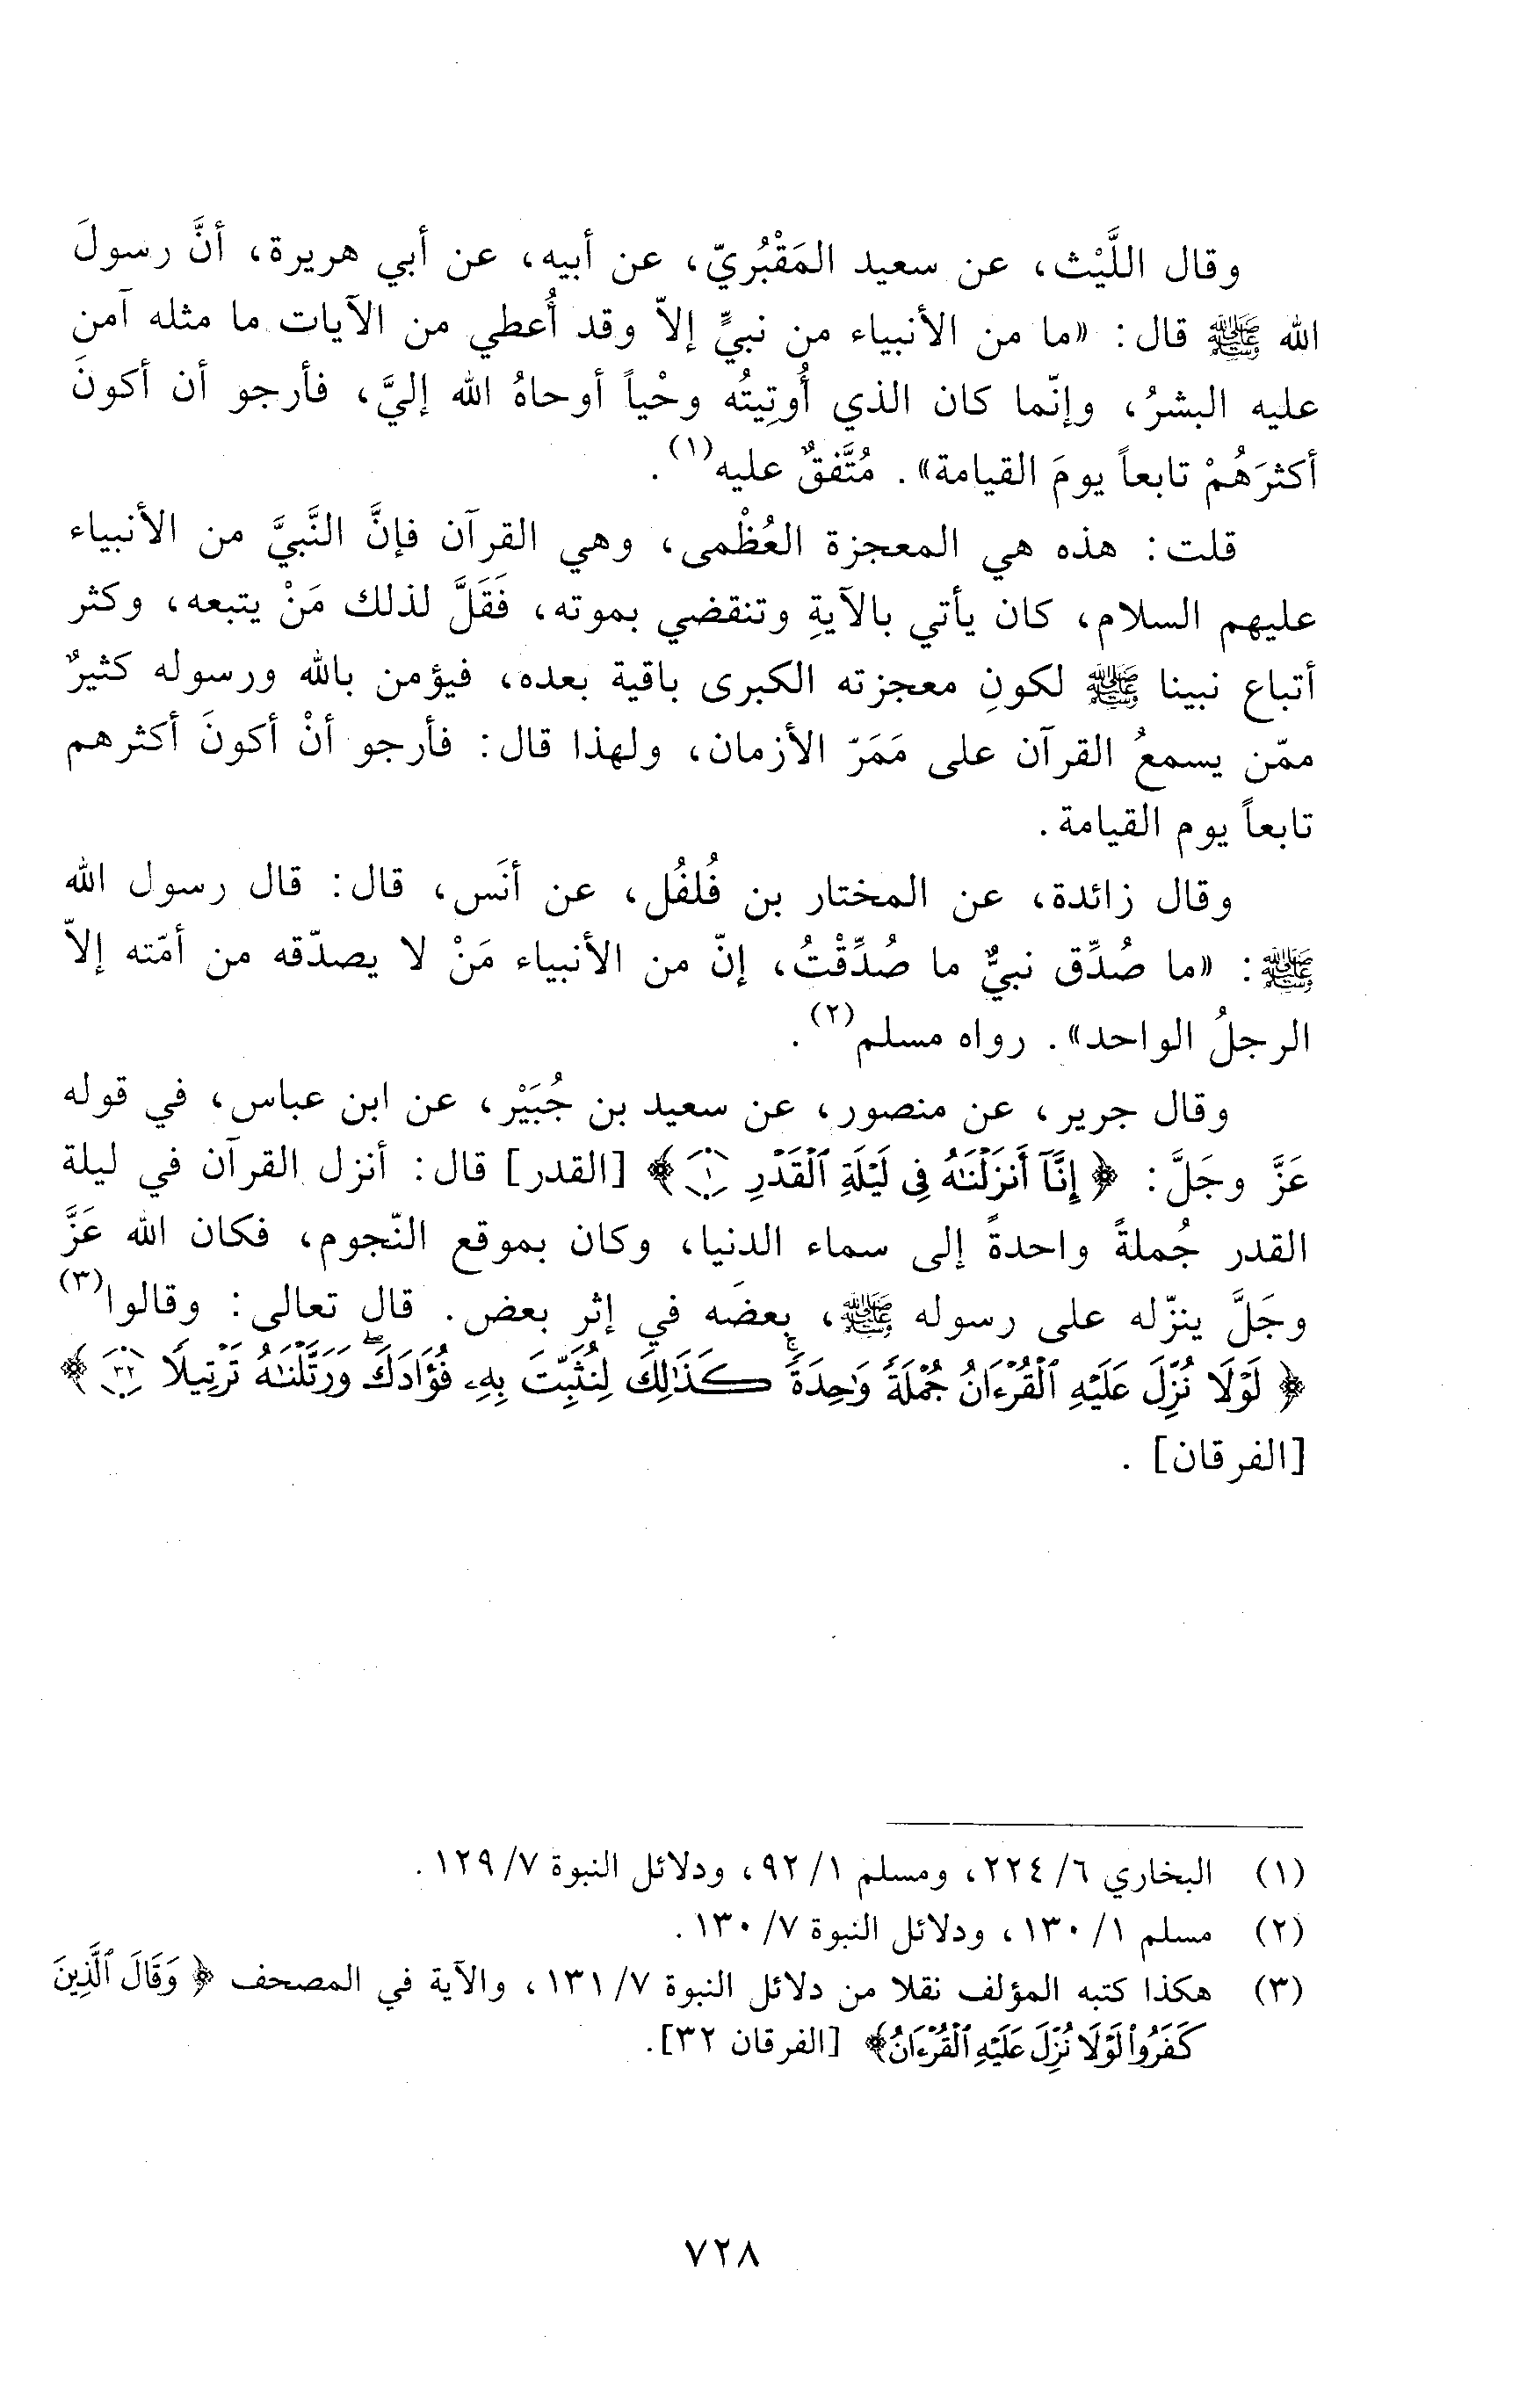 وقال اللَّيْث، عن سعيد المَقْبُريّ، عن أبيه، عن أبي هريرة، أنَّ رسولَ
الله ﷺ قال: «ما من الأنبياء من نبيٍّ إلاّ وقد أُعطي من الآيات ما مثله آمن
عليه البشرُ، وإنّما كان الذي أُوتِيتُه وحْياً أوحاهُ الله إليَّ، فأرجو أن أكونَ
أكثرَهُمْ تابعاً يومَ القيامة». مُتَّفقٌ عليه(١).
قلت: هذه هي المعجزة العُظْمى، وهي القرآن فإنَّ النَّبيَّ من الأنبياء
عليهم السلام، كان يأتي بالآيةِ وتنقضي بموته، فَقَلَّ لذلك مَنْ يتبعه، وكثر
أتباع نبينا ﷺ لكونِ معجزته الكبرى باقية بعده، فيؤمن بالله ورسوله كثيرٌ
ممّن يسمعُ القرآن على مَمَرّ الأزمان، ولهذا قال: فأرجو أنْ أكونَ أكثرهم
تابعاً يوم القيامة.
وقال زائدة، عن المختار بن فُلفُل، عن أنَس، قال: قال رسول الله
ﷺ: «ما صُدِّق نبيٌّ ما صُدِّقْتُ، إنّ من الأنبياء مَنْ لا يصدّقه من أمّته إلاّ
الرجلُ الواحد». رواه مسلم(٢).
وقال جرير، عن منصور، عن سعيد بن جُبَيْر، عن ابن عباس، في قوله
عَزَّ وجَلَّ: ﴿ إِنَّآ أَنزَلْنَٰهُ فِى لَيْلَةِ ٱلْقَدْرِ ١ ﴾ [القدر] قال: أنزل القرآن في ليلة
القدر جُملةً واحدةً إلى سماء الدنيا، وكان بموقع النّجوم، فكان الله عَزَّ
وجَلَّ ينزّله على رسوله ﷺ، بعضَه في إثر بعض. قال تعالى: وقالوا(٣)
﴿ لَوْلَا نُزِّلَ عَلَيْهِ ٱلْقُرْءَانُ جُمْلَةً وَٰحِدَةً ۚ كَذَٰلِكَ لِنُثَبِّتَ بِهِۦ فُؤَادَكَ ۖ وَرَتَّلْنَٰهُ تَرْتِيلًا ٣٢ ﴾
[الفرقان].
(١) البخاري ٦/ ٢٢٤، ومسلم ١/ ٩٢، ودلائل النبوة ٧/ ١٢٩.
(٢) مسلم ١/ ١٣٠، ودلائل النبوة ٧/ ١٣٠.
(٣) هكذا كتبه المؤلف نقلا من دلائل النبوة ٧/ ١٣١، والآية في المصحف ﴿ وَقَالَ ٱلَّذِينَ
كَفَرُوا۟ لَوْلَا نُزِّلَ عَلَيْهِ ٱلْقُرْءَانُ﴾ [الفرقان ٣٢].
٧٢٨